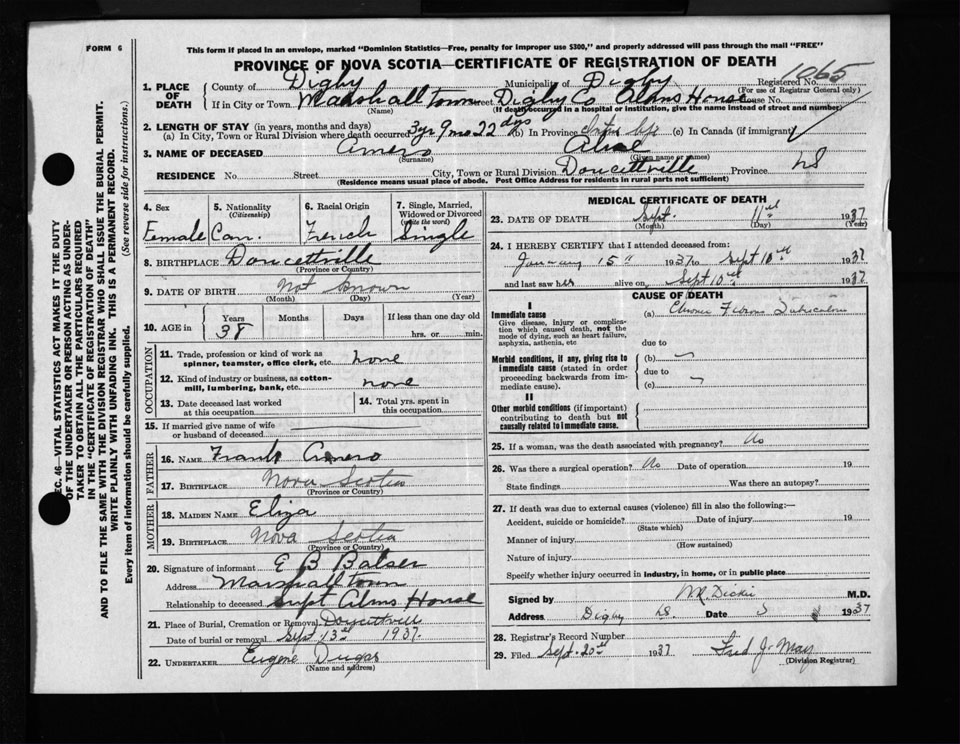 FORM 6
This form if placed in an envelope, marked "Dominion Statistics—Free, penalty for improper use $300," and properly addressed will pass through the mail "FREE"
PROVINCE OF NOVA SCOTIA—CERTIFICATE OF REGISTRATION OF DEATH
1. PLACE OF DEATH
County of Digby Municipality of Digby Registered No. 1065
(For use of Registrar General only)
If in City or Town Marshalltown Street Digby Co Alms House House No.
(If death occurred in a hospital or institution, give the name instead of street and number)
2. LENGTH OF STAY (in years, months and days)
(a) In City, Town or Rural Division where death occurred 3 yr 9 mo 22 dys (b) In Province Entire life (c) In Canada (if immigrant)
3. NAME OF DECEASED Amero
(Surname) (Given name or names)
RESIDENCE No. Street City, Town or Rural Division Doucettville Province NS
(Residence means usual place of abode. Post Office Address for residents in rural parts not sufficient)
4. Sex
Female
5. Nationality
(Citizenship)
Can.
6. Racial Origin
French
7. Single, Married, Widowed or Divorced
(write the word)
Single
8. BIRTHPLACE Doucettville
(Province or Country)
9. DATE OF BIRTH Not Known
(Month) (Day) (Year)
10. AGE in
Years Months Days If less than one day old
38
hrs. or min.
OCCUPATION
11. Trade, profession or kind of work as spinner, teamster, office clerk, etc. none
12. Kind of industry or business, as cotton-mill, lumbering, bank, etc. none
13. Date deceased last worked at this occupation
14. Total yrs. spent in this occupation
15. If married give name of wife or husband of deceased
FATHER
16. NAME Frank Amero
17. BIRTHPLACE Nova Scotia
(Province or Country)
MOTHER
18. MAIDEN NAME Eliza
19. BIRTHPLACE Nova Scotia
(Province or Country)
20. Signature of informant E B Balser
Address Marshalltown
Relationship to deceased Supt Alms House
21. Place of Burial, Cremation or Removal Doucettvill
Date of burial or removal Sept 13th 1937.
22. UNDERTAKER Eugene Dugas
(Name and address)
MEDICAL CERTIFICATE OF DEATH
23. DATE OF DEATH Sept. 11th 1937
(Month) (Day) (Year)
24. I HEREBY CERTIFY that I attended deceased from:
January 15th 1937 to Sept 10th 1937
and last saw her alive on Sept 10th 1937
CAUSE OF DEATH
I
Immediate cause
Give disease, injury or complication which caused death, not the mode of dying, such as heart failure, asphyxia, asthenia, etc
(a) Chronic Fibrous Tuberculosis
due to
Morbid conditions, if any, giving rise to immediate cause (stated in order proceeding backwards from immediate cause).
(b)
due to
(c)
II
Other morbid conditions (if important) contributing to death but not causally related to immediate cause.
25. If a woman, was the death associated with pregnancy? No
26. Was there a surgical operation? No Date of operation 19
State findings Was there an autopsy?
27. If death was due to external causes (violence) fill in also the following:—
Accident, suicide or homicide? Date of injury 19
(State which)
Manner of injury
(How sustained)
Nature of injury
Specify whether injury occurred in industry, in home, or in public place
Signed by Dickie M.D.
Address Digby NS. Date 1937
28. Registrar's Record Number
29. Filed Sept. 20th 1937 Fred J. May
(Division Registrar)
SEC. 46—VITAL STATISTICS ACT MAKES IT THE DUTY OF THE UNDERTAKER OR PERSON ACTING AS UNDERTAKER TO OBTAIN ALL THE PARTICULARS REQUIRED IN THE "CERTIFICATE OF REGISTRATION OF DEATH" AND TO FILE THE SAME WITH THE DIVISION REGISTRAR WHO SHALL ISSUE THE BURIAL PERMIT.
WRITE PLAINLY WITH UNFADING INK. THIS IS A PERMANENT RECORD.
Every item of information should be carefully supplied. (See reverse side for instructions.)